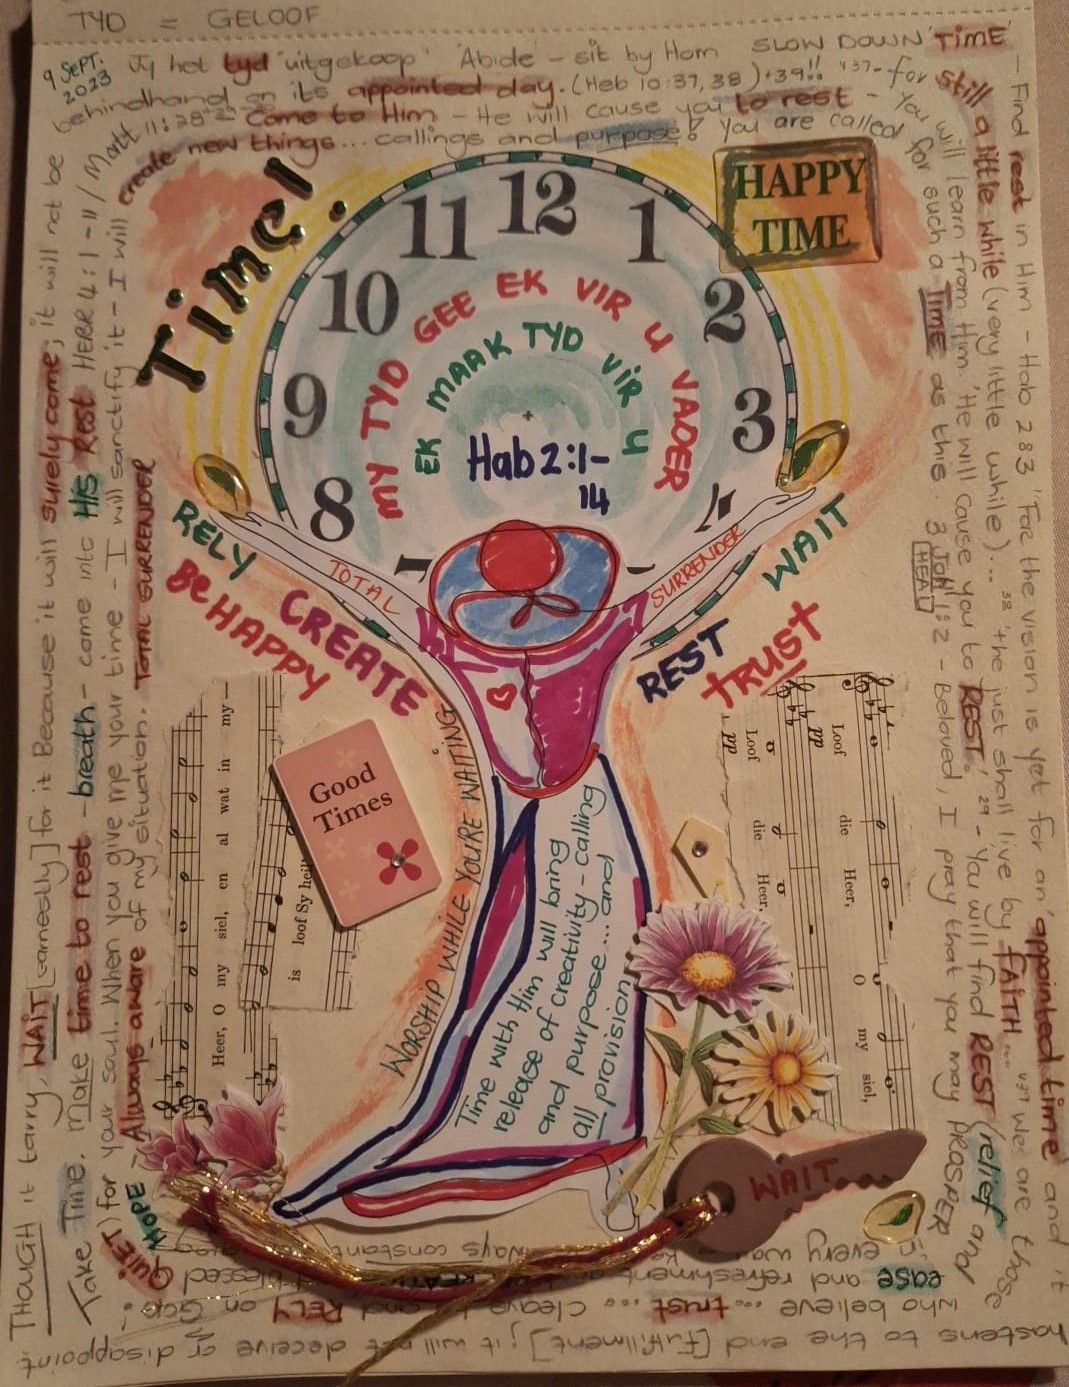 TYD = GELOOF
9 SEPT. 2023
Jy het tyd 'uitgekoop' 'Abide' - sit by Hom SLOW DOWN TIME
behindhand on its appointed day. (Heb 10:37, 38) +39!! "37- for
Matt 11:28-- Come to Him - He will cause you to rest - You
create new things... callings and purpose! You are called
still a little while (very little while)... 38 'the just shall live by FAITH... "39 We are those
will learn from Him. 'He will cause you to REST.' 29 - 'You will find REST (relief and
for such a Time as this. 3 JOH 1:2 - Beloved, I pray that you may PROSPER
HEAL
- Find rest in Him - Hab 2 & 3 'For the vision is yet for an appointed time and it
hastens to the end [fulfillment]; it will not deceive or disappoint.
who believe ... trust ... cleave to and RELY on God.
ease and refreshment and blessed
in every way
always constant
THOUGH it tarry, WAIT [earnestly] for it Because it will surely come; it will not be
Take Time. Make time to rest - breath - come into His Rest HEBR 4:1-11/
QUIET) for your soul. When you give me your time - I will sanctify it - I will
HOPE - Always aware of my situation. TOTAL SURRENDER
Time!
HAPPY
TIME
11 12 1
10 2
9 3
8 4
MY TYD GEE EK VIR U VADER
EK MAAK TYD VIR U
Hab 2:1-
14
RELY
BE HAPPY
CREATE
TOTAL
SURRENDER
WAIT
REST
TRUST
Good
Times
WORSHIP WHILE YOU'RE WAITING
Time with Him will bring
release of creativity - calling
and purpose... and
all provision
Heer, O my siel, en al wat in my -
is loof Sy heil
pp
Loof die Heer,
pp
Loof die Heer, O my siel,
WAIT